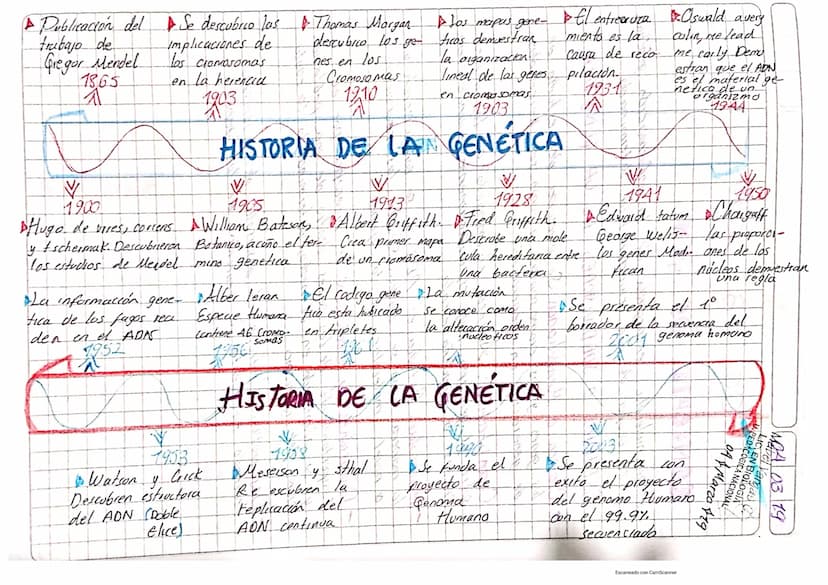 Publicación del
trabajo de
Gregor Mendel
1865
Se descubrio las
implicaciones de
los cromosomas
en la herencia
1903
Thomas Morgan
descubrio los ge-
nes en los
Cromosomas
1910
Los mapas gene-
ticos demuestran
la organizacion
lineal de los genes
en cromosomas
1903
El entrecruza
miento es la
causa de reco
pilación
1931
Oswald avery
colin, mc lead
mc carly Demu
estran que el ADN
es el material ge-
netico de un
organizmo
1944
HISTORIA DE LA GENÉTICA
1900
Hugo de vires, coriens
y tschermak. Descubrieron
los estudios de Mendel
1905
William Batson,
Botanico, acuño el ter-
mino genetica
1913
Albert Griffith.
Crea primer mapa
de un cromosoma
1928
Fred Griffith.
Describe una mole
cula hereditaria entre
una bacteria
1941
Edward tatum
George Welis-
los genes Modi-
fican
1950
Chargaff
las proporci-
ones de los
núcleos demuestran
una regla
La informacion gene-
tica de los fagos reci
den en el ADN
1952
Alber leran
Especie Humana
contiene 46 Cromo-
somas
1956
El codigo gene
tico esta hubicado
en tripletes
1961
La mutación
se conoce como
la alteración orden
nucleoticos
Se presenta el 1°
borrador de la secuencia del
genoma homano
2001
HISTORIA DE LA GENÉTICA
1953
Watson y Crick
Descubren estructura
del ADN (Doble
Elice)
1958
Meselson y sthal
Re escubren la
replicación del
ADN continua
1990
Se funda el
proyecto de
Genoma
Humano
2003
Se presenta con
exito el proyecto
del genomo Humano
con el 99.9%
secuenciado
LIC. EN BIOLOGIA
PEDAGOGICA NACIONAL
04 Marzo /29
MO4 03 19
Escaneado con CamScanner